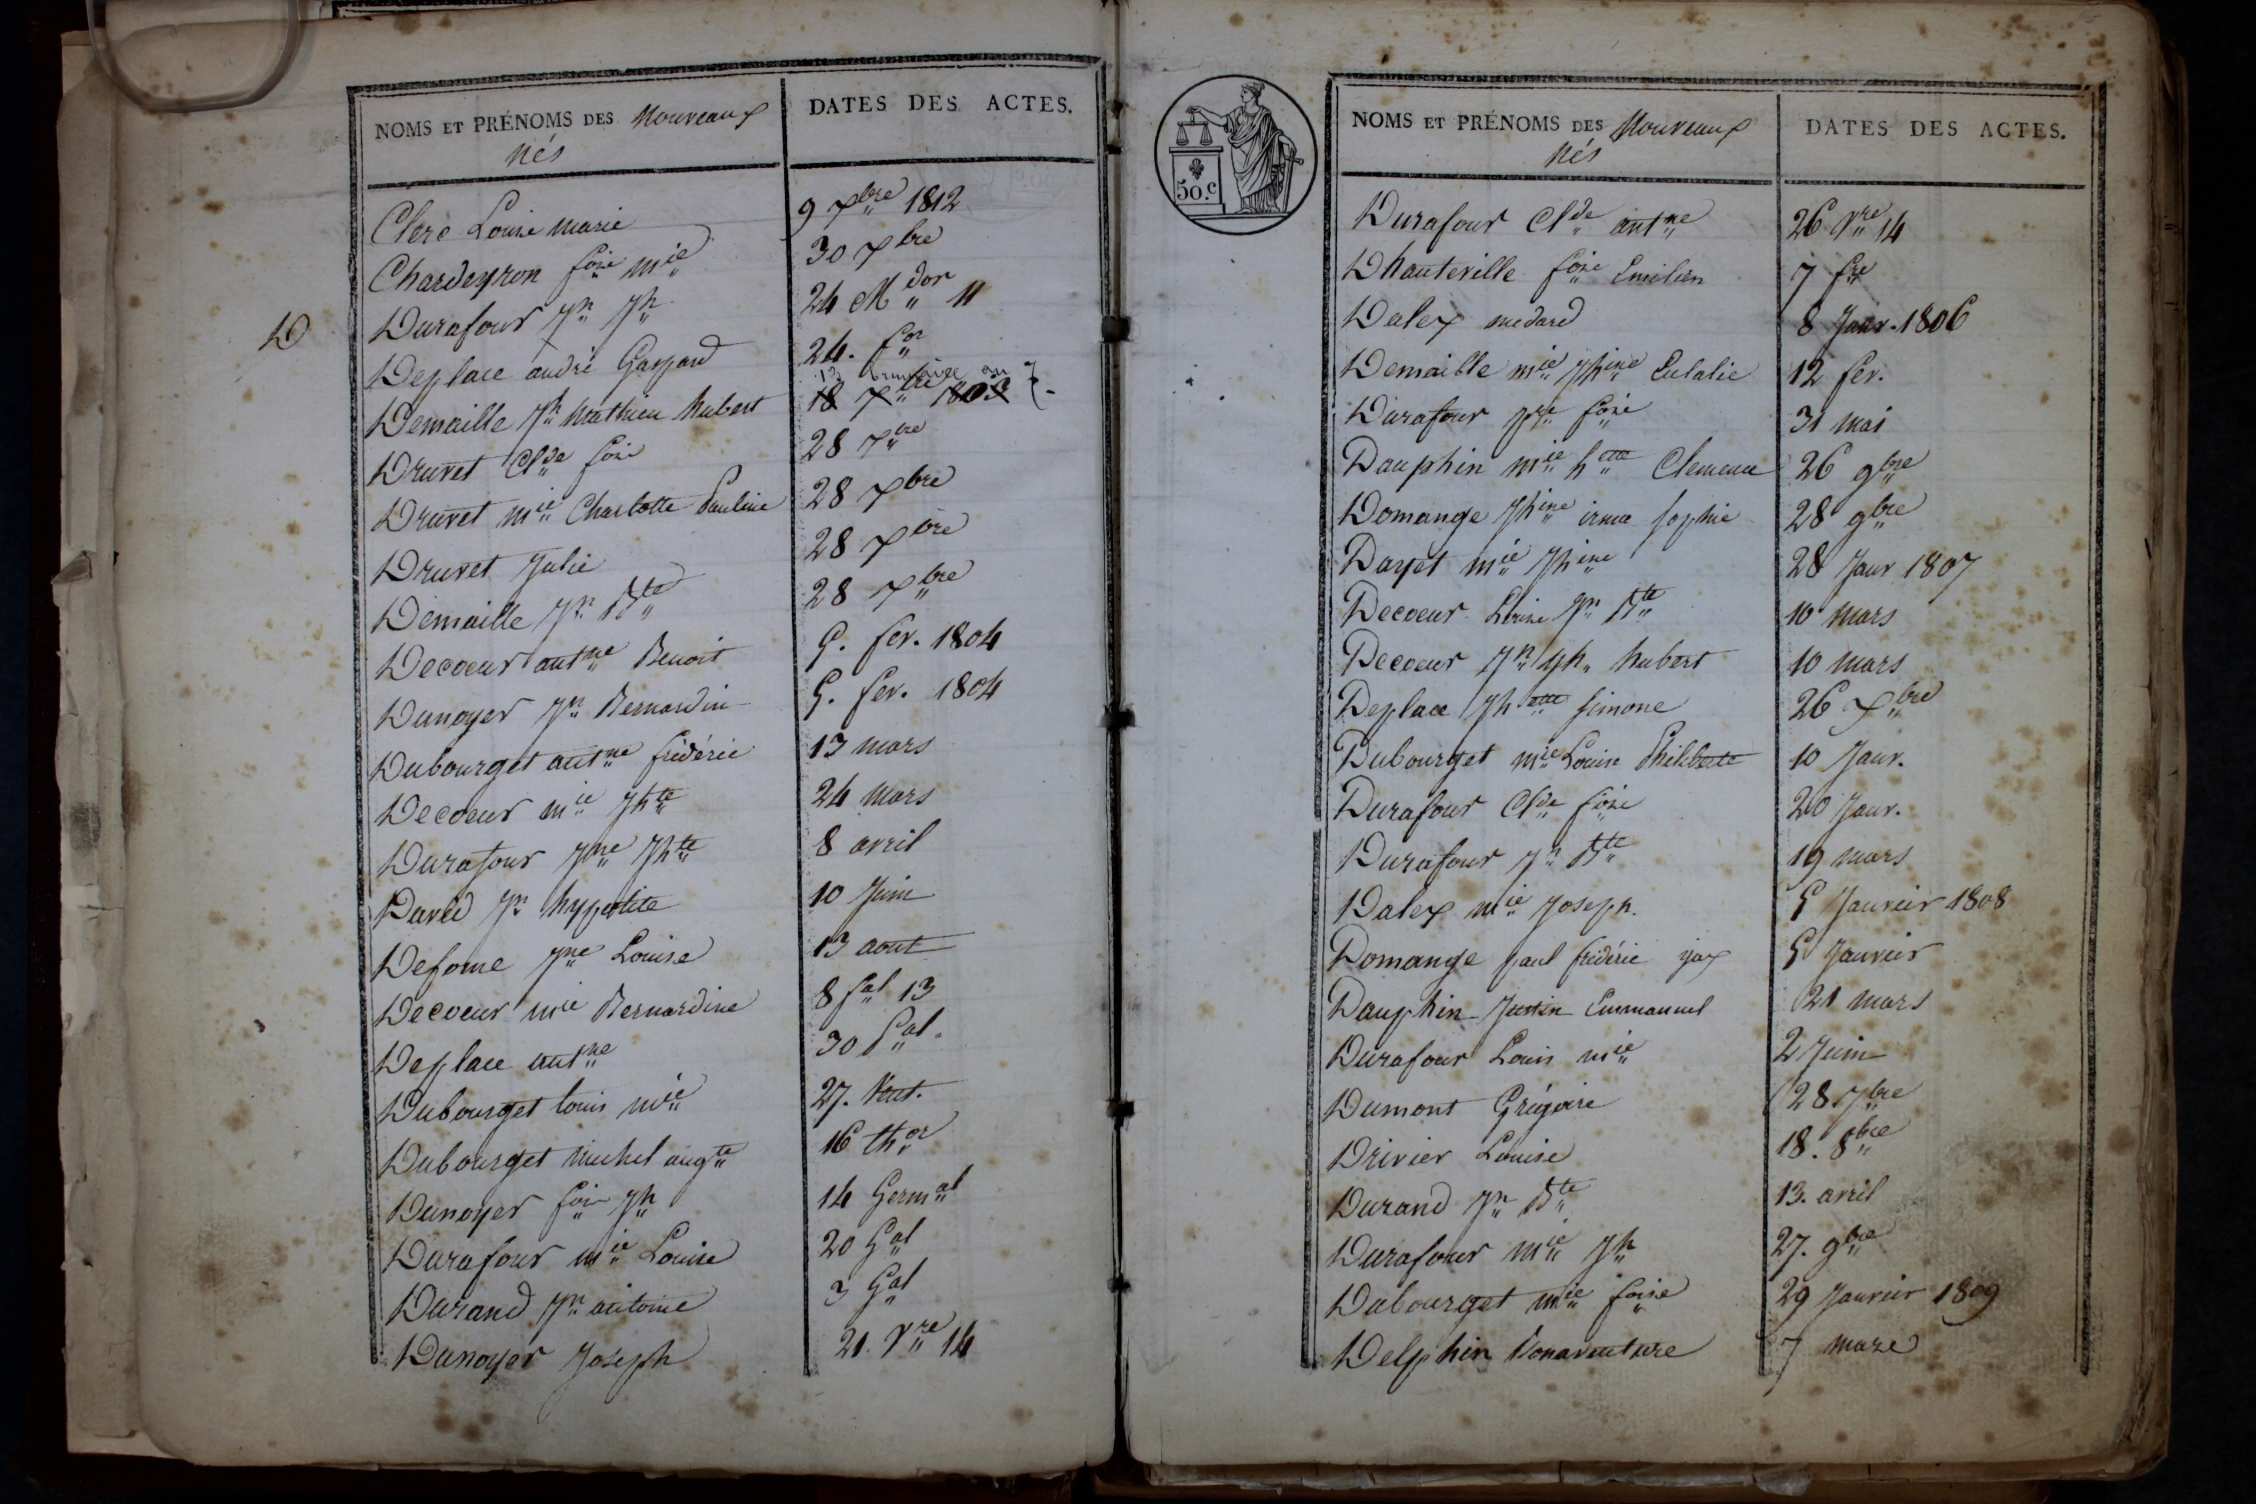 NOMS ET PRÉNOMS DES Nouveaux nés
DATES DES ACTES.
Clerc Louise marie 9 Xbre 1812
Chardeyron foise mie 30 Xbre
D
Durafour Jn Jh 24 Mdor 11
Deplace andré Gaspard 24. for
13 brumaire an
Demaille Jh Mathieu hubert 18 Xbre 1803
Druvet Clde fois 28 Xbre
Druvet mie Charlotte Pauline 28 Xbre
Druvet Julie 28 Xbre
Demaille Jn Bte 28 Xbre
Decoeur antne Benoit 5. fev. 1804
Dunoyer Jn Bernardin 5. fev. 1804
Dubourget antne frédéric 13 mars
Decoeur mie Jhte 24 mars
Durafour Jne Jhte 8 avril
David Jn hypolite 10 Juin
Defome Jne Louise 13 aout
Decoeur mie Bernardine 8 fal 13
Deplace antne 30 Pal.
Dubourget louis mie 27. Vent.
Dubourget michel augte 16 thor
Dunoyer fois Jh 14 Germal
Durafour mie Louise 20 Gal
Durand Jn antoine 3 Gal
Dunoyer Joseph 21. Vre 14
50.c
NOMS ET PRÉNOMS DES Nouveaux nés
DATES DES ACTES.
Durafour Clde antne 26 Vre 14
Dhauteville fois Emilien 7 fre
Dalex medard 8 Janv. 1806
Demaille mie Jhine Eulalie 12 fev.
Durafour Jne foise 31 mai
Dauphin mie htte Clemence 26 9bre
Domange Jhine irma sophie 28 9bre
Dayet mie Jhine 28 Janv 1807
Decoeur Louise Jn Bte 10 mars
Decoeur Jn Jh hubert 10 mars
Deplace Jhtte simone 26 Xbre
Dubourget mie Louise Philiberte 10 Janv.
Durafour Clde foise 20 Janv.
Durafour Jn Bte 19 mars
Dalex mie Joseph. 5 Janvier 1808
Domange paul frédéric 5 Janvier
Dauphin Justin Emmanuel 21 mars
Durafour Louis mie 2 Juin
Dumont Grégoire 28. 7bre
Drivier Louise 18. 8bre
Durand Jn Bte 13. avril
Durafour mie Jh 27. 9bre
Dubourget mie foise 29 Janvier 1809
Delphin Bonaventure 7 mars